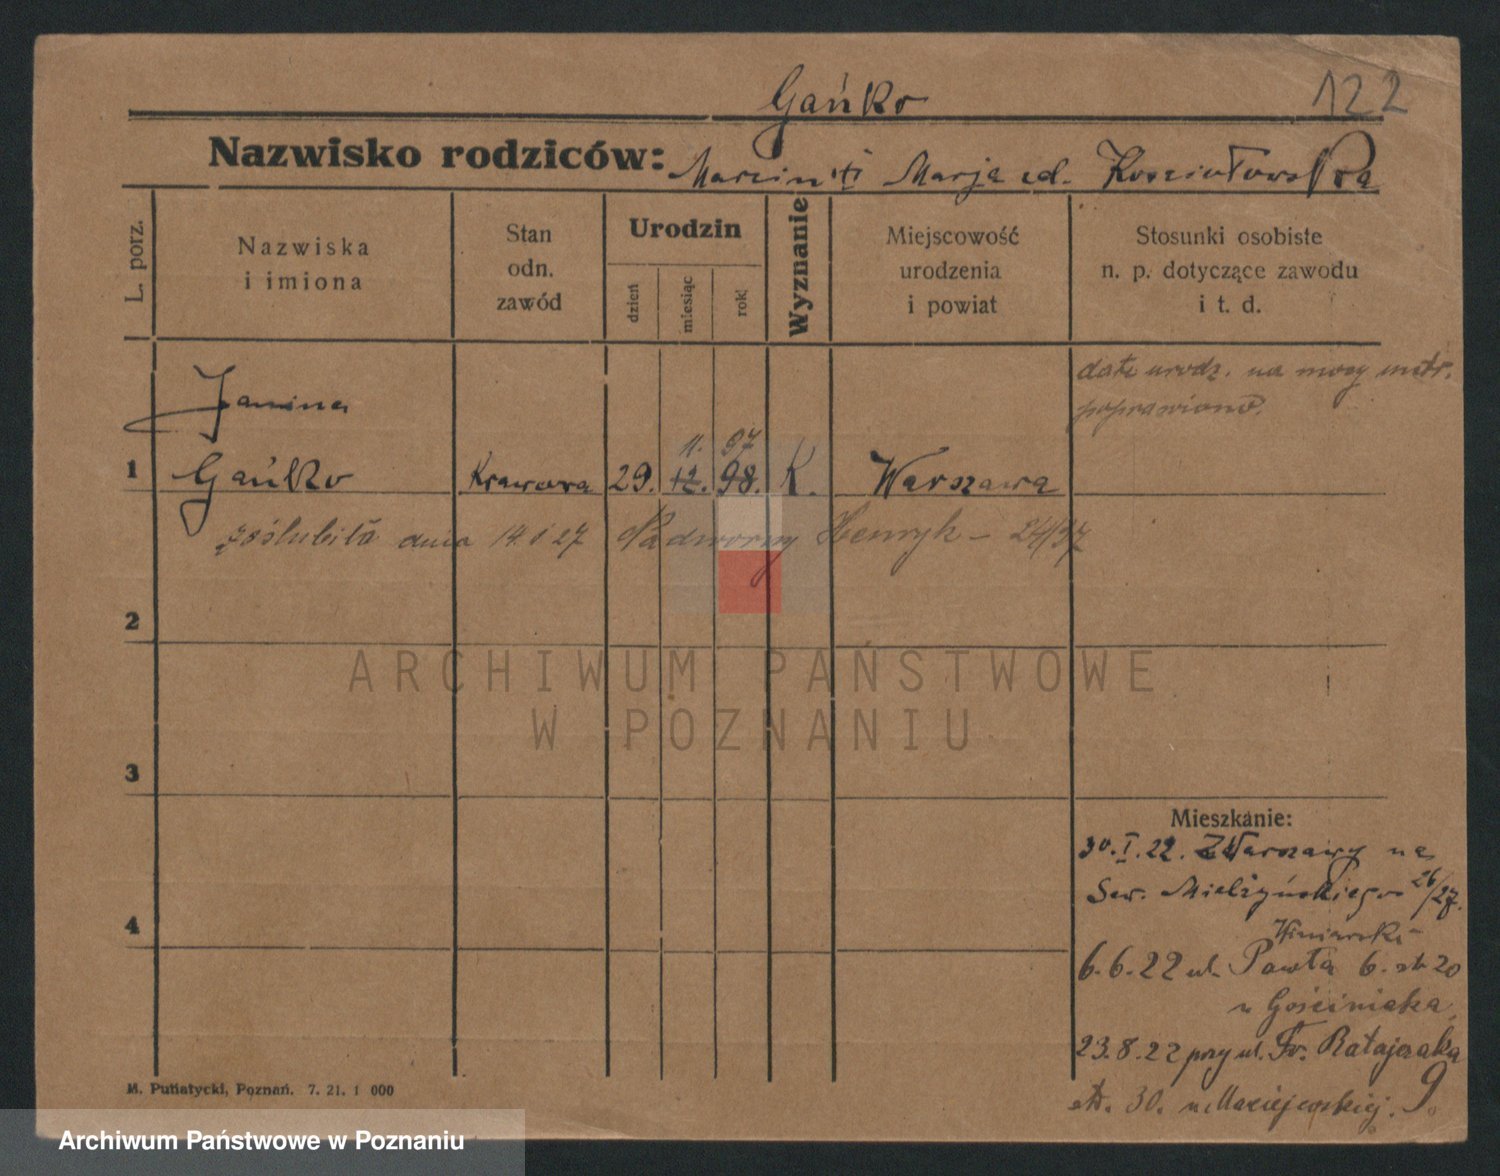 Gańko
122
Nazwisko rodziców: Marcin i Marja zd. Kosciołowska
L. porz.
Nazwiska
i imiona
Stan
odn.
zawód
Urodzin
dzień
miesiąc
rok
Wyznanie
Miejscowość
urodzenia
i powiat
Stosunki osobiste
n. p. dotyczące zawodu
i t. d.
datę urodz. na mocy metr.
poprawiono.
Janina
11. 97
1 Gańko Krawcowa 29. 12. 98. K. Warszawa
zaślubiła dnia 14. 1 27 Nadworny Henryk - 24/97
2
3
4
Mieszkanie:
30. I. 22. z Warszawy na
Sew. Mielżyńskiego 26/27.
Winiarski
6. 6. 22 ul. Pawła 6. st. 20
u Gościniaka
23. 8. 22 przy ul. Fr. Ratajczaka
30. u Maciejewskiej. 9.
M. Putiatycki, Poznań. 7. 21. 1 000
ARCHIWUM PAŃSTWOWE
W POZNANIU
Archiwum Państwowe w Poznaniu